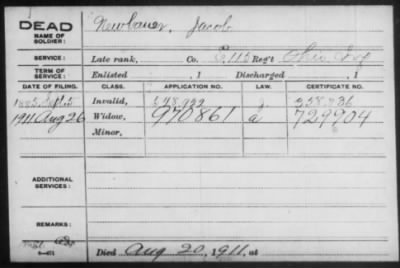 DEAD
NAME OF SOLDIER: Newbauer, Jacob
SERVICE: Late rank, Co. E, 115 Reg't Ohio Inf
TERM OF SERVICE: Enlisted , 1 Discharged , 1
DATE OF FILING. CLASS. APPLICATION NO. LAW. CERTIFICATE NO.
Sept. 5 Invalid,
1911 Aug 26 Widow, 970861 a 729904
Minor,
ADDITIONAL SERVICES:
REMARKS:
Died Aug 20, 1911, at